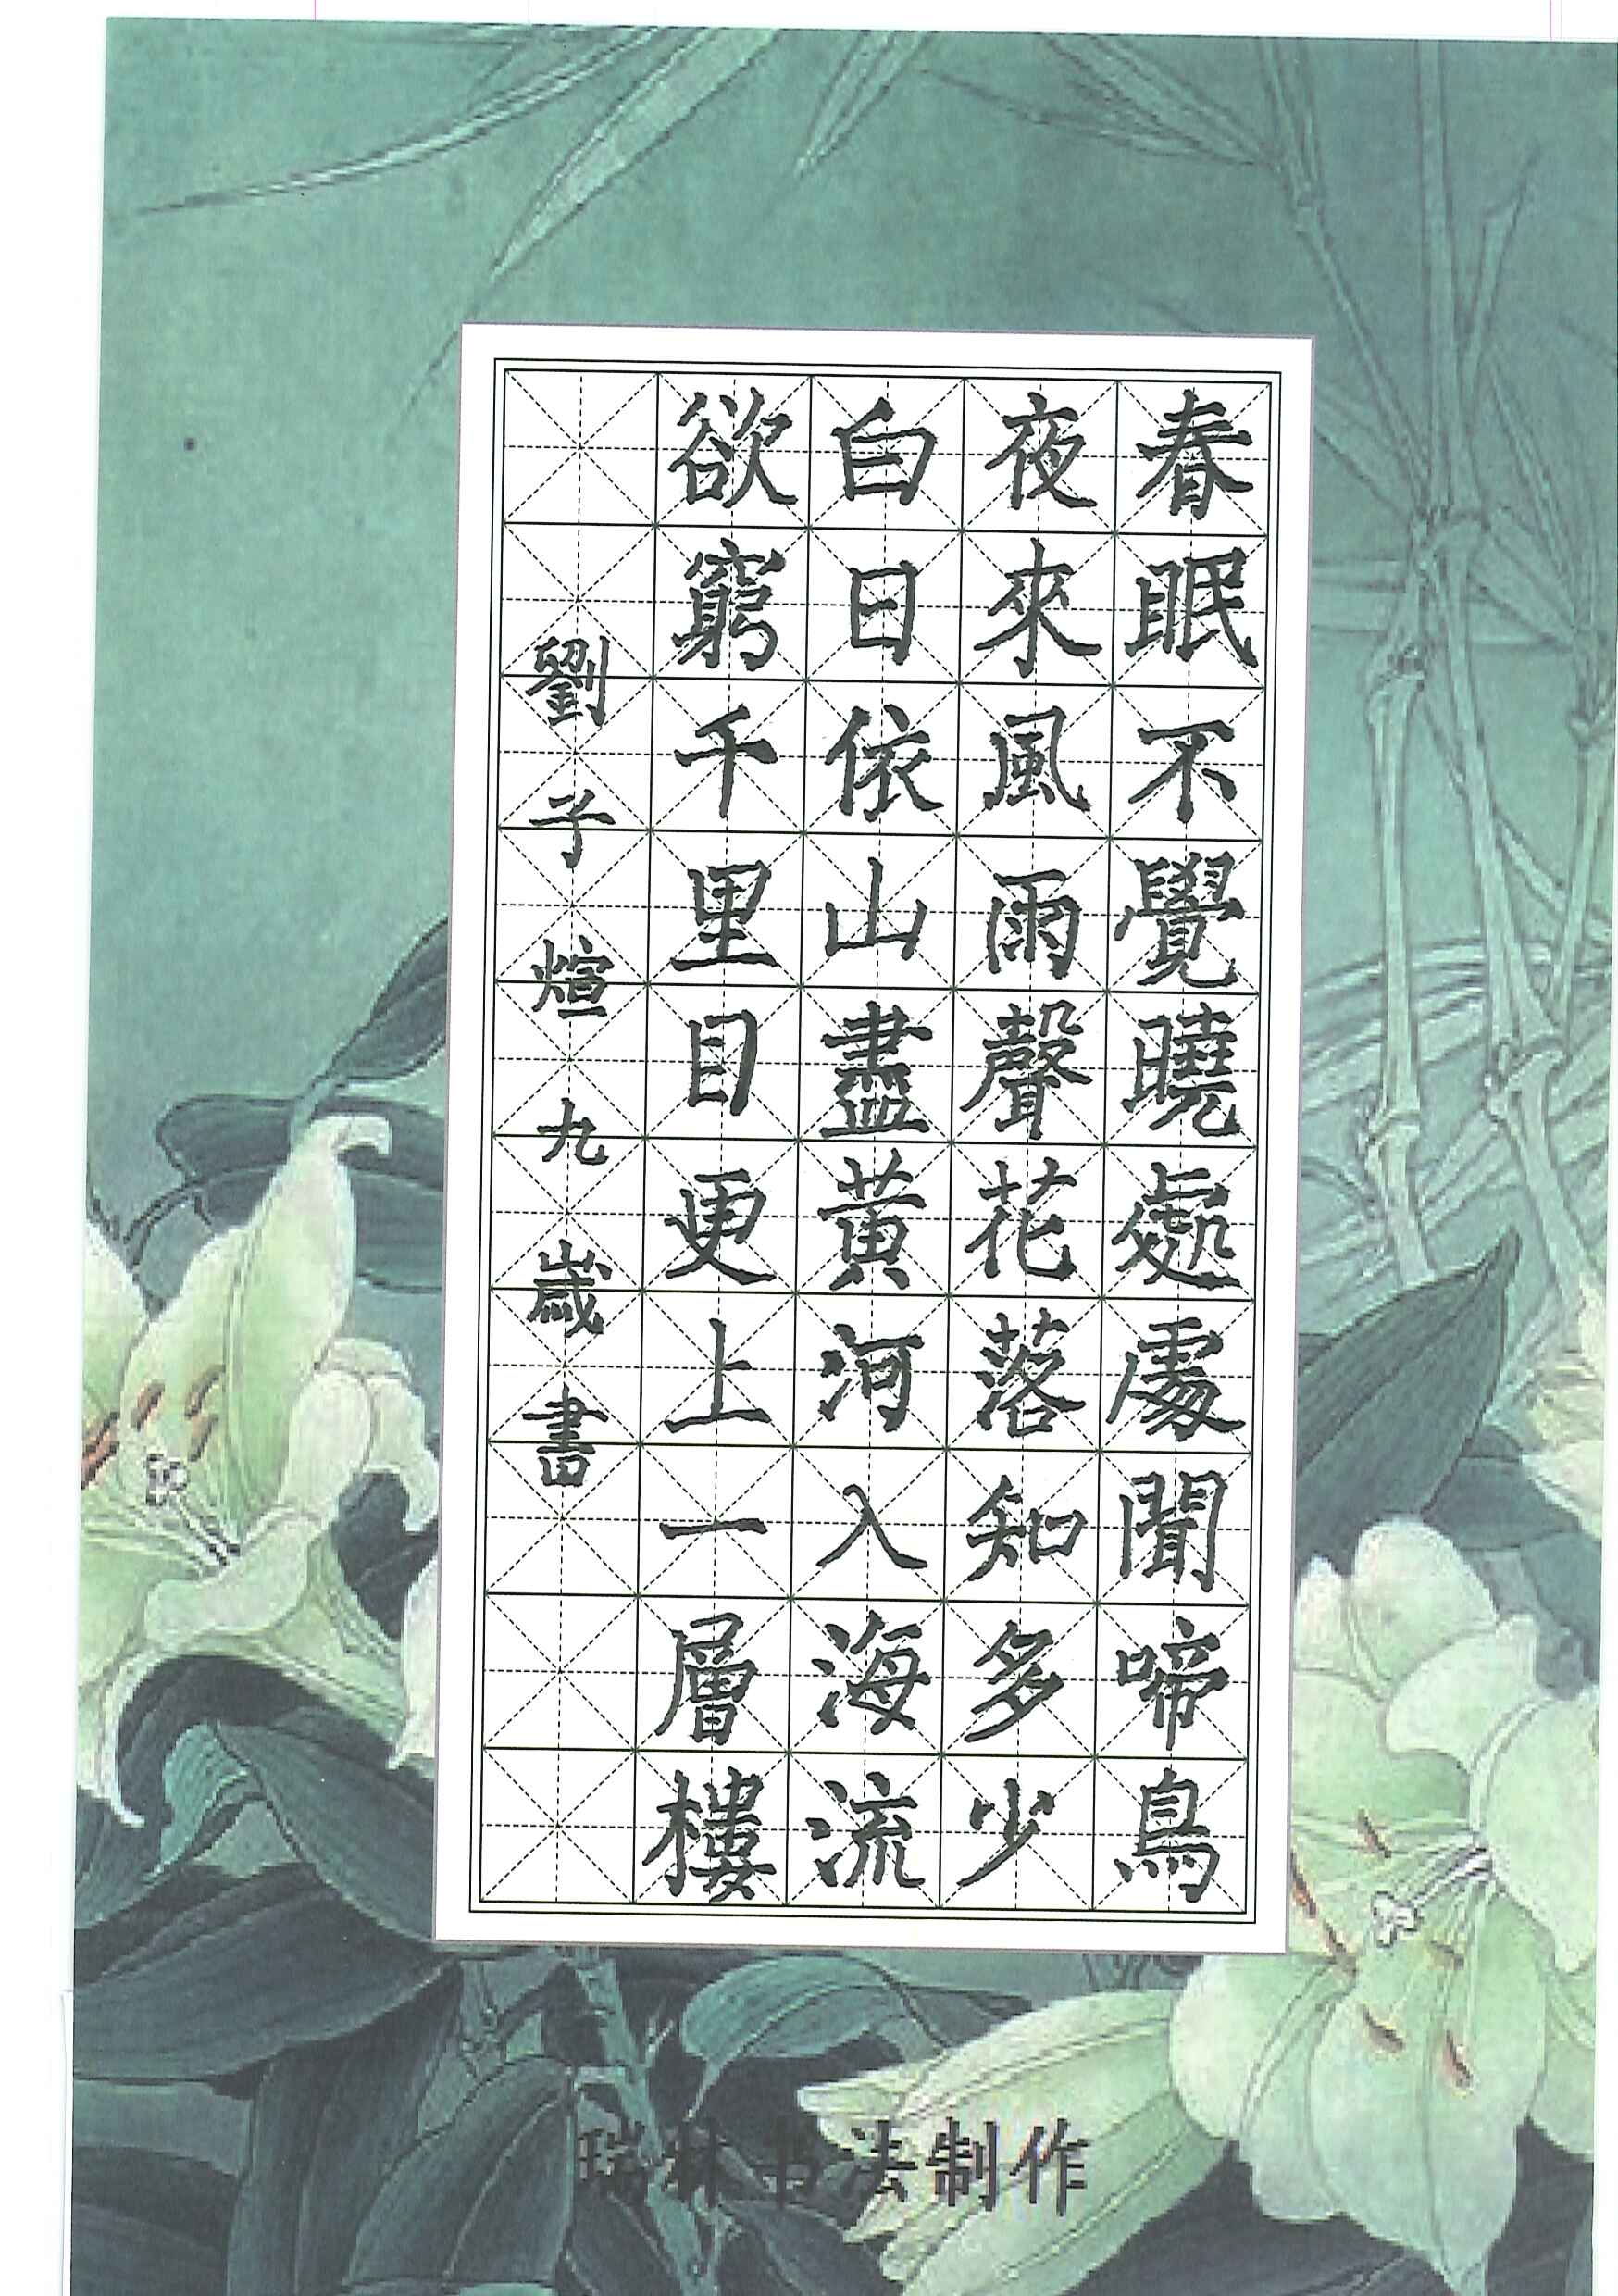 春眠不覺曉處處聞啼鳥
夜來風雨聲花落知多少
白日依山盡黃河入海流
欲窮千里目更上一層樓
劉子煊九歲書
瑞林书法制作